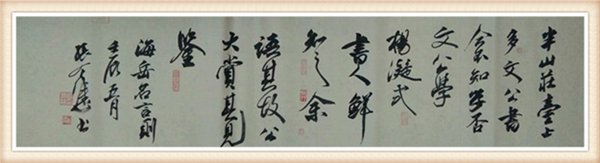 半山莊臺上
多文公書
今不知存否
文公學
楊凝式
書人鮮
知之余
語其故公
大賞其見
鑒
海岳名言則
壬辰五月
書